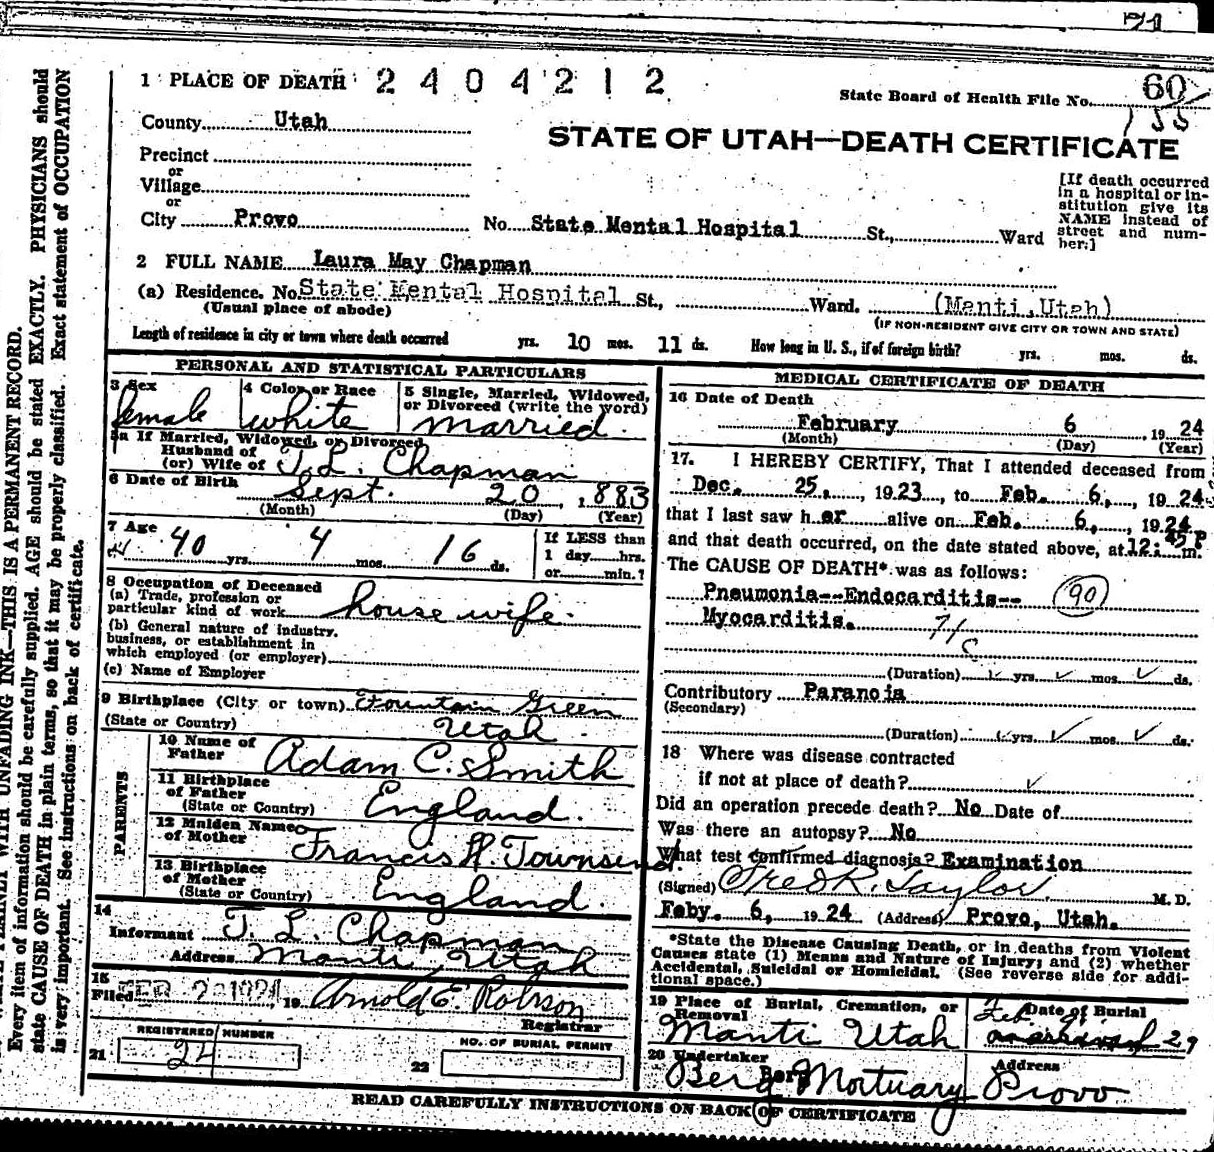 71
1 PLACE OF DEATH 2404212
State Board of Health File No. 60
155
County Utah
STATE OF UTAH—DEATH CERTIFICATE
Precinct
or
Village
or
City Provo No. State Mental Hospital St., Ward
[If death occurred
in a hospital or in-
stitution give its
NAME instead of
street and num-
ber.]
2 FULL NAME Laura May Chapman
(a) Residence. No. State Mental Hospital St., Ward. (Manti, Utah)
(Usual place of abode) (IF NON-RESIDENT GIVE CITY OR TOWN AND STATE)
Length of residence in city or town where death occurred yrs. 10 mos. 11 ds. How long in U. S., if of foreign birth? yrs. mos. ds.
PERSONAL AND STATISTICAL PARTICULARS
3 Sex 4 Color or Race 5 Single, Married, Widowed,
or Divorced (write the word)
female white married.
5a If Married, Widowed, or Divorced
Husband of
(or) Wife of T. L. Chapman
6 Date of Birth Sept. 20, 1883
(Month) (Day) (Year)
7 Age 40 yrs. 4 mos. 16 ds.
If LESS than
1 day hrs.
or min.?
8 Occupation of Deceased
(a) Trade, profession or
particular kind of work house wife.
(b) General nature of industry,
business, or establishment in
which employed (or employer)
(c) Name of Employer
9 Birthplace (City or town) Fountain Green
(State or Country) Utah.
PARENTS
10 Name of
Father Adam C. Smith
11 Birthplace
of Father
(State or Country) England.
12 Maiden Name
of Mother Francis H. Townsend.
13 Birthplace
of Mother
(State or Country) England.
14
Informant T. L. Chapman
Address Manti, Utah
15
Filed FEB 2 1924 19 Arnold E. Robison
Registrar
REGISTERED NUMBER
21 24
NO. OF BURIAL PERMIT
22
MEDICAL CERTIFICATE OF DEATH
16 Date of Death
February 6, 1924
(Month) (Day) (Year)
17. I HEREBY CERTIFY, That I attended deceased from
Dec. 25, 1923, to Feb. 6, 1924
that I last saw her alive on Feb. 6, 1924
and that death occurred, on the date stated above, at 12:45 P m.
The CAUSE OF DEATH* was as follows:
Pneumonia--Endocarditis-- 90
Myocarditis.
(Duration) yrs. mos. ds.
Contributory Paranoia
(Secondary)
(Duration) yrs. mos. ds.
18 Where was disease contracted
if not at place of death?
Did an operation precede death? No Date of
Was there an autopsy? No
What test confirmed diagnosis? Examination
(Signed) Fred R. Taylor, M. D.
Feby. 6, 1924 (Address) Provo, Utah.
*State the Disease Causing Death, or in deaths from Violent
Causes state (1) Means and Nature of Injury; and (2) whether
Accidental, Suicidal or Homicidal. (See reverse side for addi-
tional space.)
19 Place of Burial, Cremation, or
Removal
Manti Utah
Date of Burial
Feb.
29
20 Undertaker
Berg Mortuary
Address
Provo
READ CAREFULLY INSTRUCTIONS ON BACK OF CERTIFICATE
WITH UNFADING INK—THIS IS A PERMANENT RECORD.
Every item of information should be carefully supplied. AGE should be stated EXACTLY. PHYSICIANS should
state CAUSE OF DEATH in plain terms, so that it may be properly classified. Exact statement of OCCUPATION
is very important. See instructions on back of certificate.